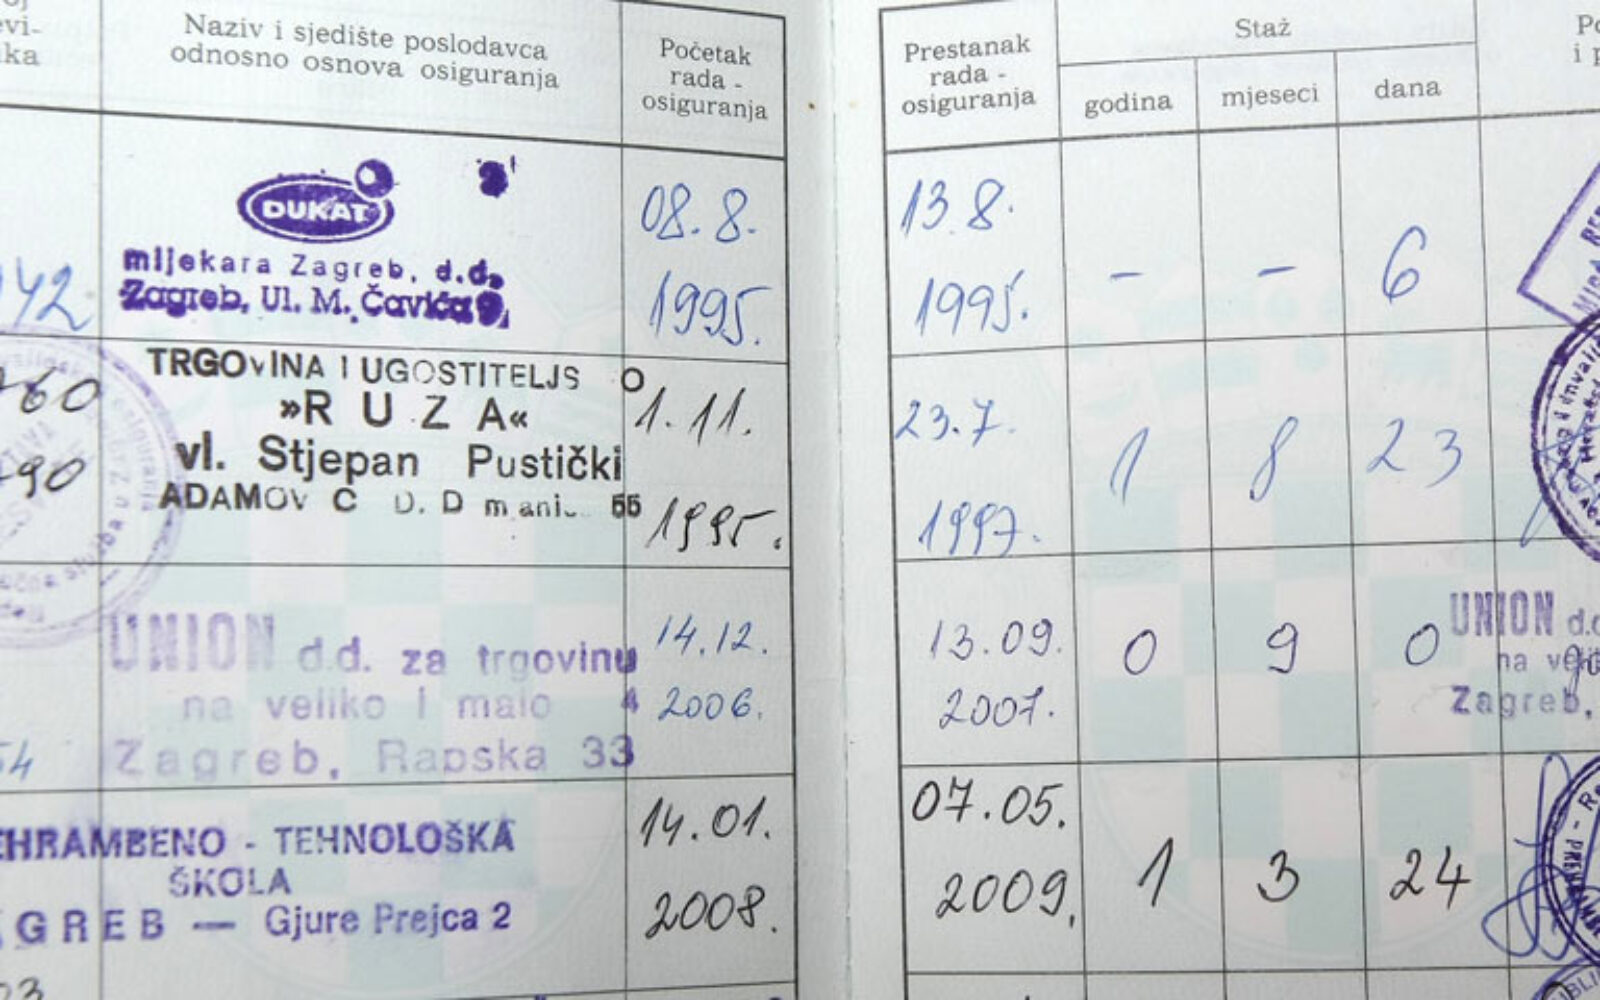 Naziv i sjedište poslodavca
odnosno osnova osiguranja
Početak
rada -
osiguranja
DUKAT
mljekara Zagreb, d.d.
Zagreb, Ul. M. Čavića 9,
08. 8.
1995.
TRGOVINA I UGOSTITELJS O
»R U Z A«
vl. Stjepan Pustički
1. 11.
1995.
60
90
UNION d.d. za trgovinu
na veliko i malo 4
Zagreb, Rapska 33
14. 12.
2006.
54
EHRAMBENO - TEHNOLOŠKA
ŠKOLA
GREB — Gjure Prejca 2
14. 01.
2008.
Prestanak
rada -
osiguranja
Staž
godina
mjeseci
dana
13. 8.
1995.
- - 6
23. 7.
1997.
1 8 23
13. 09.
2007.
0 9 0
UNION d.d.
na
Zagreb,
07. 05.
2009.
1 3 24